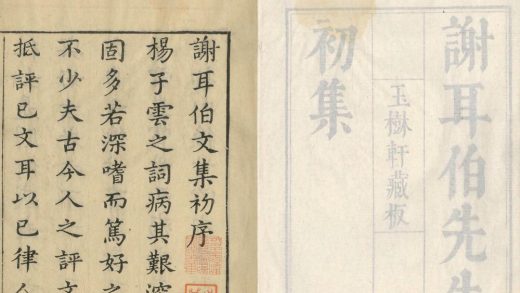 謝耳伯先生
初集
玉樹軒藏板
謝耳伯文集初序
楊子雲之詞病其艱深
固多若深嗜而篤好之
不少夫古今人之評文
抵評已文耳以已律人